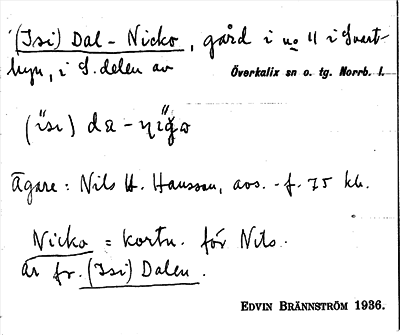 (Isi) Dal - Nicko, gård i no 11 i Svart-
byn, i S. delen av Överkalix sn o. tg. Norrb. l.
Ägare: Nils H. Hansson, avs. - f. 75 kl.
Nicko = kortn. för Nils.
är fr. (Isi) Dalen.
EDVIN BRÄNNSTRÖM 1936.